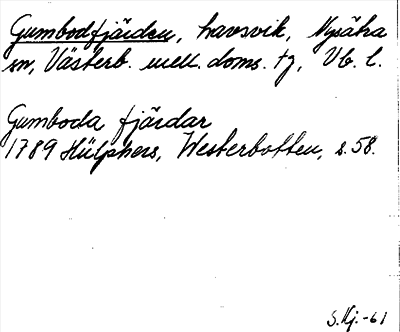 Gumbodfjärden, havsvik, Nysätra
sn, Västerb. mell. doms. tg, Vb. l.
Gumboda fjärdar
1789 Hülphers, Westerbotten, s. 58.
S.Hj.-61